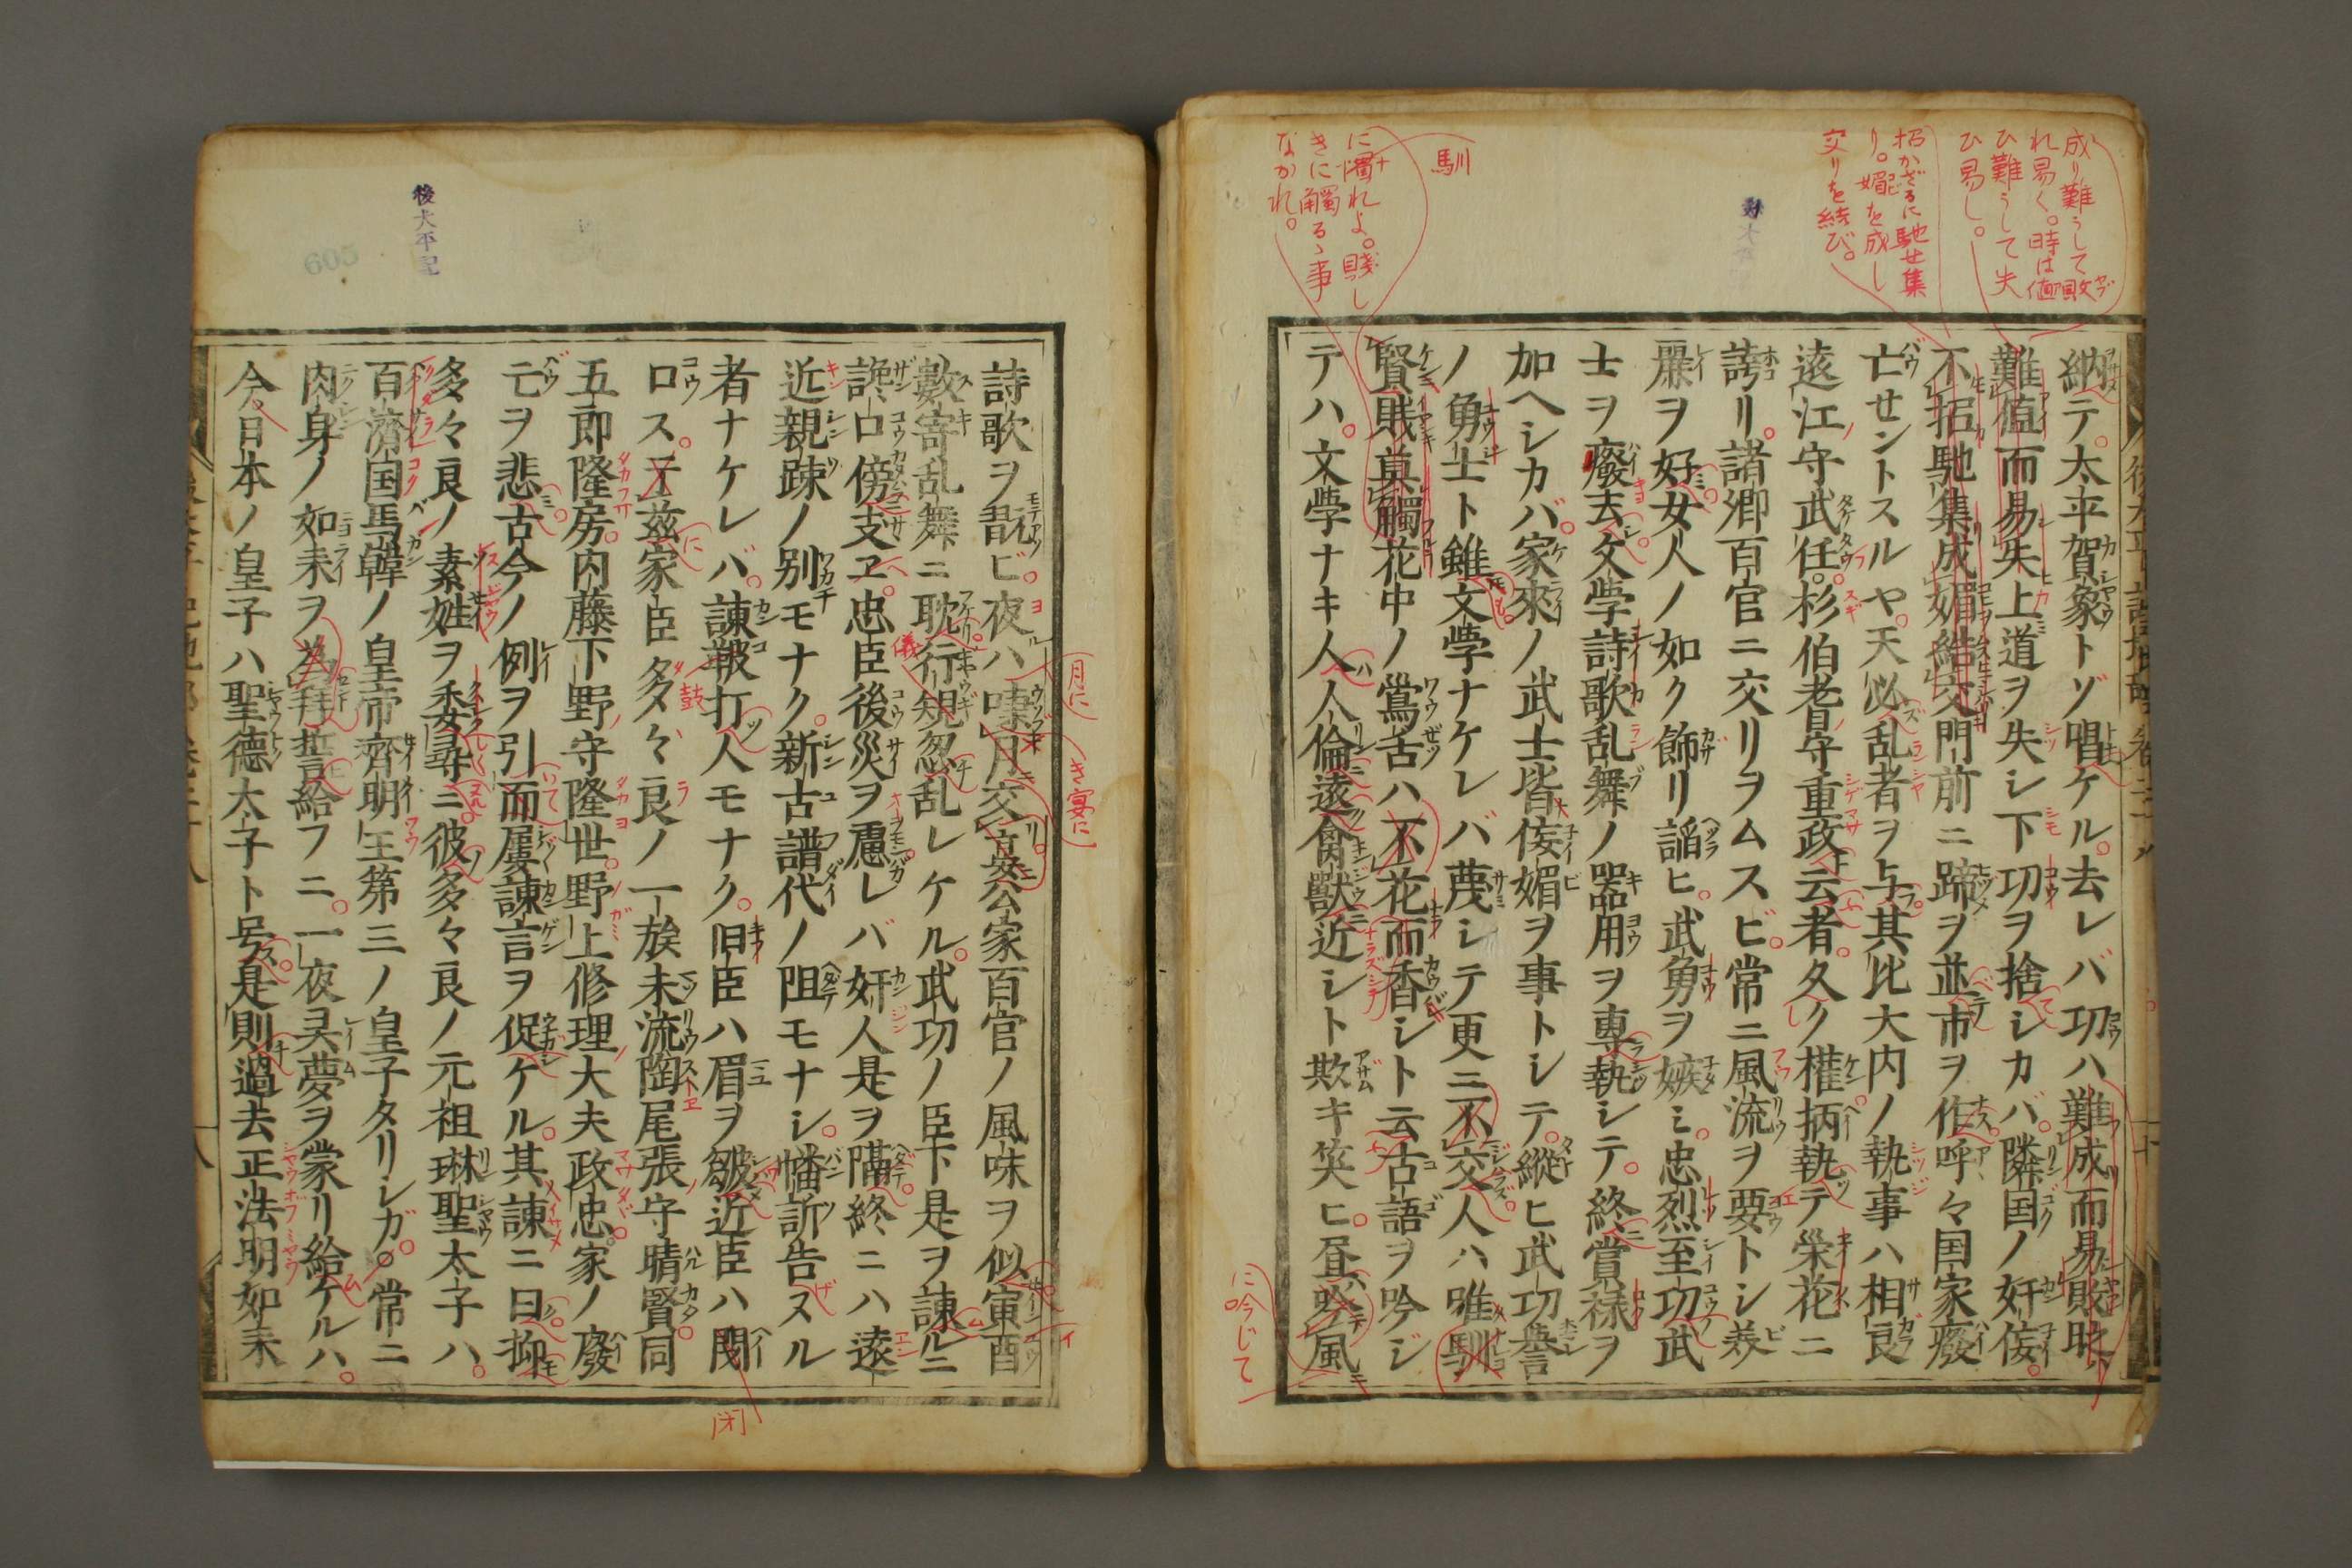 納テ太平賀象トゾ唱ケル去レバ功ハ難成而易敗時ハ
難値而易失上道ヲ失シ下功ヲ捨シカバ隣国ノ奸侫
不招馳集成媚結交門前ニ蹄ヲ並市ヲ作呼々国家癈
亡せントスルヤ天必乱者ヲ与其比大内ノ執事ハ相良
遠江守武任杉伯耆守重政云者久ク権柄執テ栄花ニ
誇リ諸卿百官ニ交リヲムスビ常ニ風流ヲ要トシ美
麗ヲ好女人ノ如ク飾リ謟ヒ武勇ヲ嫉ミ忠烈至功武
士ヲ癈去文學詩歌乱舞ノ器用ヲ專執シテ終賞禄ヲ
加ヘシカバ家來ノ武士皆侫媚ヲ事トシテ縱ヒ武功誉
ノ勇士ト雖文學ナケレバ蔑シテ更ニ不交人ハ唯馴
賢賎莫觸花中ノ鶯舌ハ不花而香シト云古語ヲ吟ジ
テハ文學ナキ人人倫遠禽獸近シト欺キ笑ヒ昼吟風
詩歌ヲ翫ビ夜ハ嘯月交宴公家百官ノ風味ヲ似寅酉
數寄乱舞ニ耽行規忽乱レケル武功ノ臣下是ヲ諫ルニ
讒口傍支ヱ忠臣後災ヲ慮レバ奸人是ヲ隔終ニハ遠
近親踈ノ別モナク新古譜代ノ阻モナシ幡訢告ヌル
者ナケレバ諫鞁打人モナク旧臣ハ眉ヲ皺近臣ハ閇
口ス于茲家臣多々良ノ一族末流陶尾張守晴賢同
五郎隆房内藤下野守隆世野上修理大夫政忠家ノ廢
亡ヲ悲古今ノ例ヲ引而屢諫言ヲ促ケル其諫ニ曰抑
多々良ノ素姓ヲ委尋ニ彼多々良ノ元祖琳聖太子ハ
百濟国馬韓ノ皇帝齊明王第三ノ皇子タリシガ常ニ
肉身ノ如来ヲ為拜誓給フニ一夜灵夢ヲ蒙リ給ケルハ
今日本ノ皇子ハ聖德太子ト号是則過去正法明如来
成り難うして敗
れ易く。時は値
ひ難うして失
ひ易し。
招かざるに馳せ集
り。媚を成し
交りを結び。
馴
に獨れよ。賤し
きに觸るゝ事
なかれ。
に吟じて
月に
き宴に
閉
後太平記
605